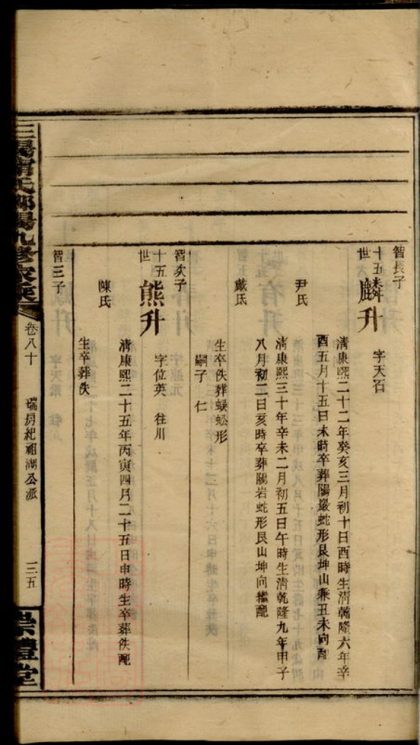 智長子
十五世
麟升 字天石
清康熙二十二年癸亥三月初十日酉時生清乾隆六年辛
酉五月十五日未時卒葬陽巖蛇形艮坤山兼丑未向配
尹氏
清康熙三十年辛未二月初五日午時生清乾隆九年甲子
八月初二日亥時卒葬陽岩蛇形艮山坤向繼配
戴氏
生卒佚葬蜈蚣形
嗣子 仁
智次子
十五世
熊升 字位英 往川
清康熙二十五年丙寅四月二十五日申時生卒葬佚配
陳氏
生卒葬佚
智三子
九修族
卷八十
瑞房祀祖湖公派
三五
崇禮堂